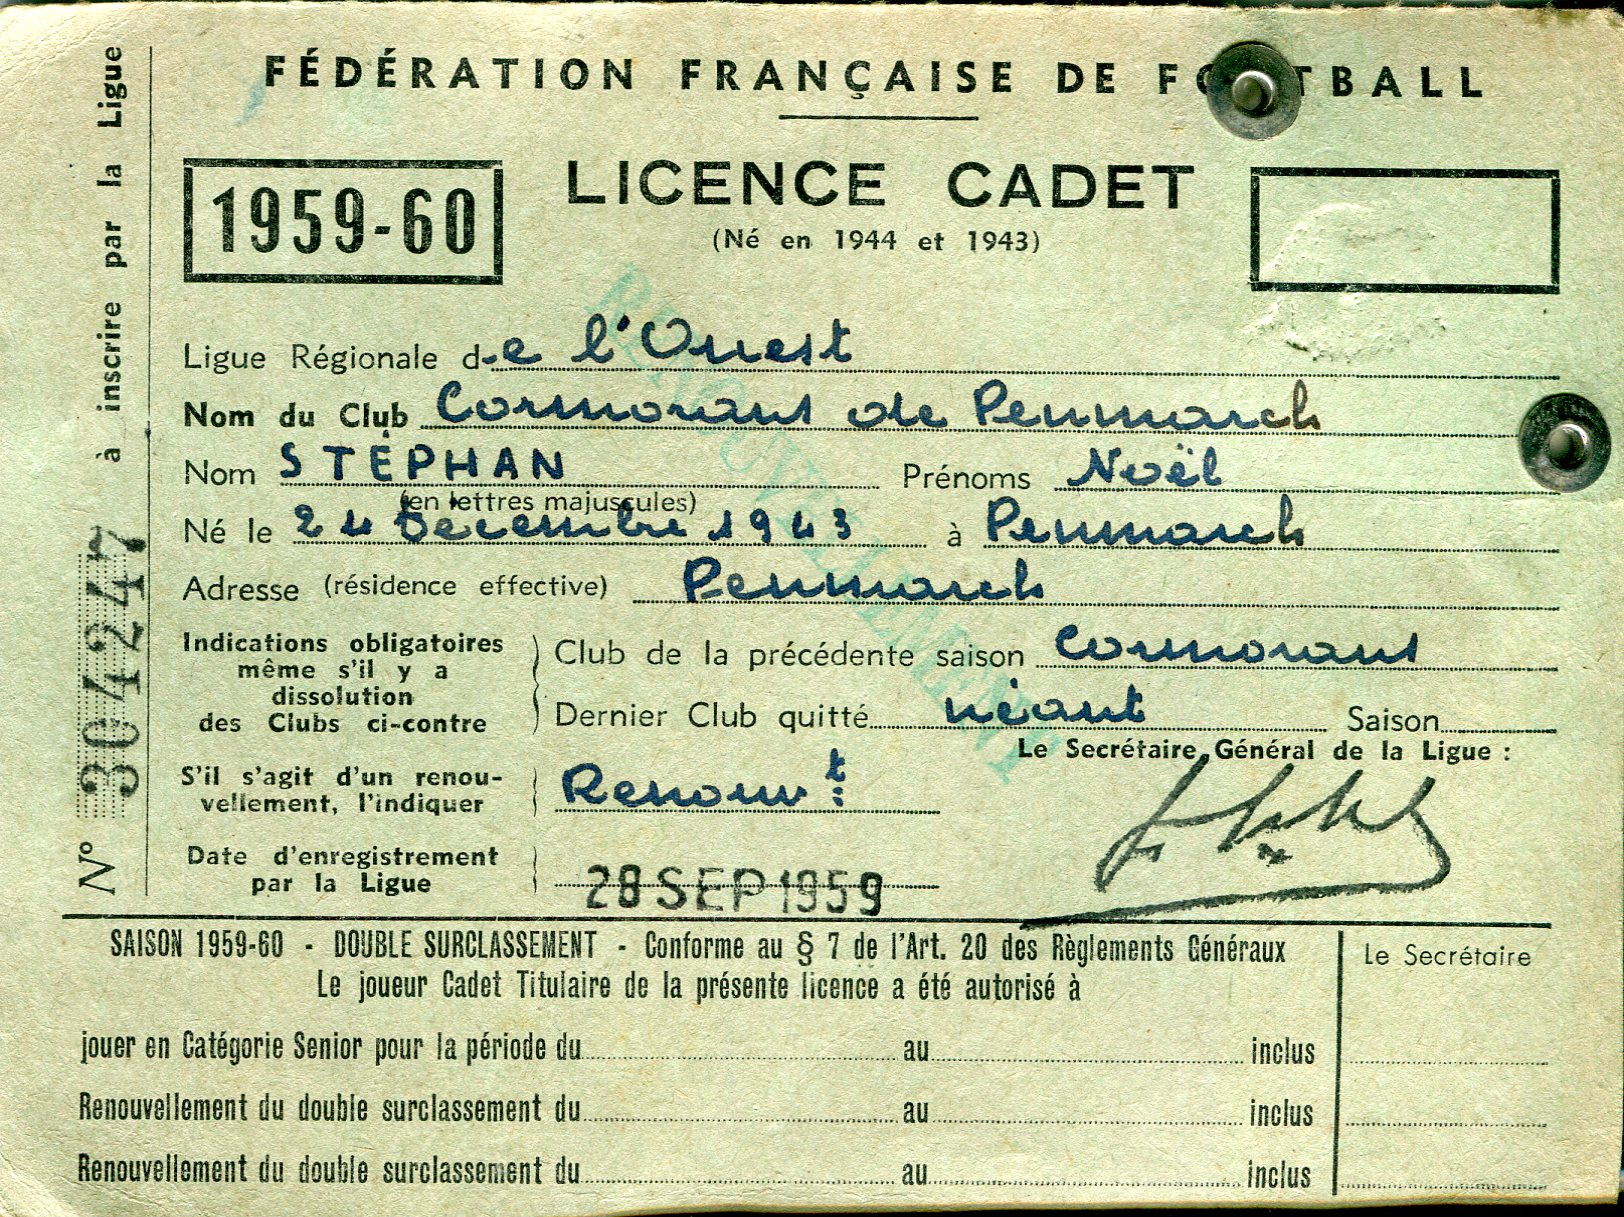 FÉDÉRATION FRANÇAISE DE FOOTBALL
1959-60
LICENCE CADET
(Né en 1944 et 1943)
RENOUVELLEMENT
Ligue Régionale d-e l'Ouest
Nom du Club Cormorans de Penmarch
Nom STÉPHAN Prénoms Noël
(en lettres majuscules)
Né le 24 Décembre 1943 à Penmarch
Adresse (résidence effective) Penmarch
Indications obligatoires
même s'il y a
dissolution
des Clubs ci-contre
Club de la précédente saison Cormorans
Dernier Club quitté néant Saison
Le Secrétaire Général de la Ligue :
S'il s'agit d'un renou-
vellement, l'indiquer
Renouvt
Date d'enregistrement
par la Ligue
28 SEP 1959
N° 304247 à inscrire par la Ligue
SAISON 1959-60 - DOUBLE SURCLASSEMENT - Conforme au § 7 de l'Art. 20 des Règlements Généraux
Le joueur Cadet Titulaire de la présente licence a été autorisé à
Le Secrétaire
jouer en Catégorie Senior pour la période du au inclus
Renouvellement du double surclassement du au inclus
Renouvellement du double surclassement du au inclus